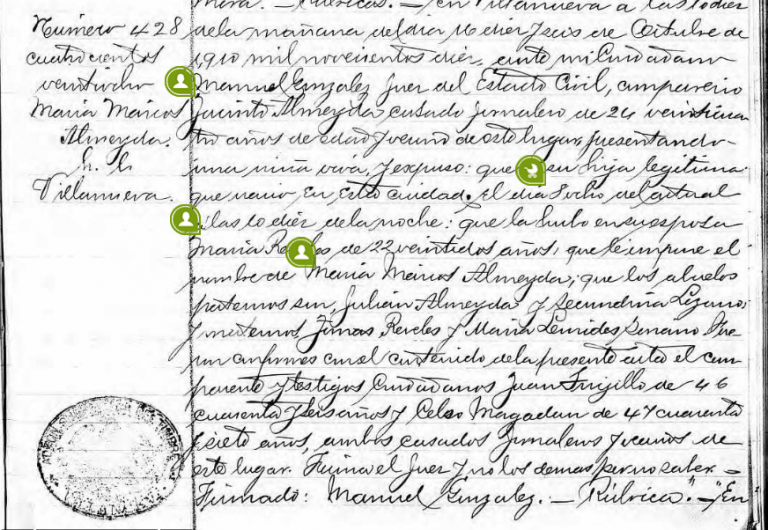 Número 428
cuatrocientos
veintiocho
María Marcos
Almeyda.
h. l.
Villanueva.
hora. — Rúbricas. — En Villanueva a las 10 diez
de la mañana del día 16 diez y seis de Octubre de
1910 mil novecientos diez, ante mi Ciudadano
Manuel Gonzalez Juez del Estado Civil, compareció
Jacinto Almeyda, casado jornalero de 24 veinticua
tro años de edad y vecino de este lugar presentando
una niña viva, y expuso: que su hija legítima
que nació en esta ciudad. el día 8 ocho del actual
a las 10 diez de la noche: que la hubo en su esposa
María de 22 veintidos años, que le impuse el
nombre de María Marcos Almeyda; que los abuelos
paternos son, Julián Almeyda y Secundina Lozano;
y maternos Jimas Reveles y María Leonides Serrano Fue
ron conformes con el contenido de la presente acta el com
parente y testigos Ciudadanos Juan Trujillo de 46
cuarenta y seis años y Celso Magadan de 47 cuarenta
y siete años, ambos casados jornaleros vecinos de
este lugar. Firma el Juez y no los demas por no saber. —
Firmado: Manuel Gonzalez. — Rúbrica". — "En